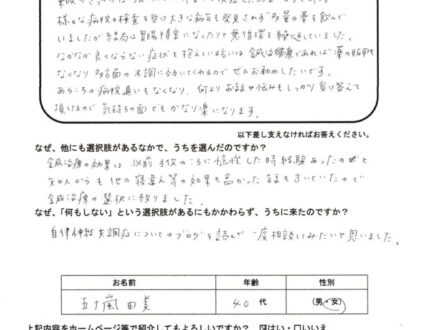 様々な病院の検査を受け大きな病気も発見されず多量の薬を飲んで
いましたが結局は胃腸障害になったりと悪循環を繰り返していました。
なかなか良くならない症状を抱えている方には鍼灸治療であれば薬の副作用も
なくなり多方面の不調に分いてくれるのでぜひお勧めしたいです。
あちこちの病院通いもなくなり、何よりお話や悩みもしっかり受け答えて
頂けるので気持ちの面でもかなり楽になります。
以下差し支えなければお答えください。
なぜ、他にも選択肢があるなかで、うちを選んだのですか？
鍼治療の効果は以前子供のころに捻挫した時経験あったのと
知人からも他の
効果も高かった話もきいていたので
鍼灸治療の選択に致りました。
なぜ、「何もしない」という選択肢があるにもかかわらず、うちに来たのですか？
自律神経失調症についてのブログを読んで一度相談してみたいと思いました。
お名前 年齢 性別
五十嵐 由美 40代 (男・女)
上記内容をホームページ等で紹介してもよろしいですか？ ☑はい・□いいえ